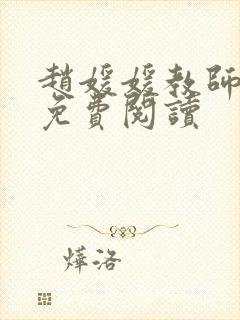 趙媛媛教師
免費閱讀
燁洛